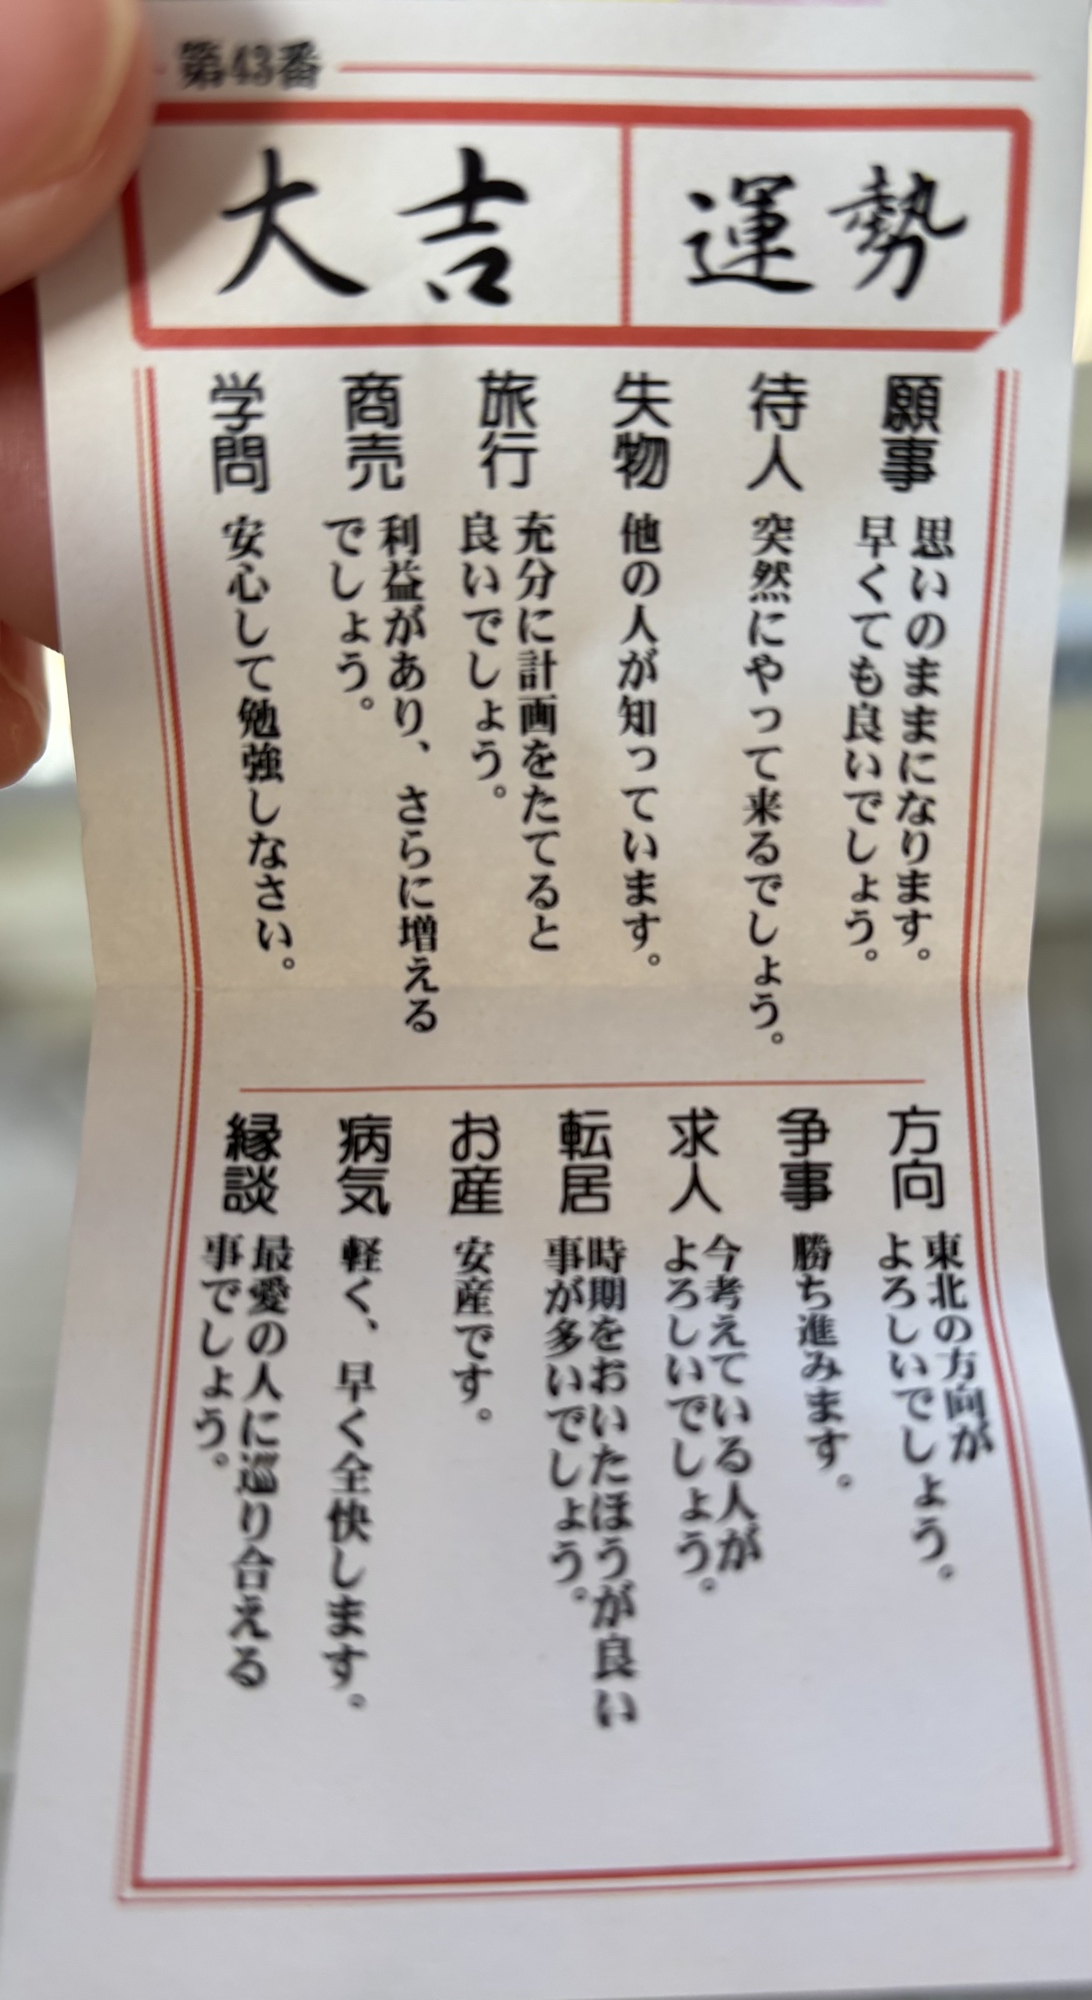 第43番
運勢
大吉
願事
思いのままになります。
早くても良いでしょう。
待人
突然にやって来るでしょう。
失物
他の人が知っています。
旅行
充分に計画をたてると
良いでしょう。
商売
利益があり、さらに増える
でしょう。
学問
安心して勉強しなさい。
方向
東北の方向が
よろしいでしょう。
争事
勝ち進みます。
求人
今考えている人が
よろしいでしょう。
転居
時期をおいたほうが良い
事が多いでしょう。
お産
安産です。
病気
軽く、早く全快します。
縁談
最愛の人に巡り合える
事でしょう。